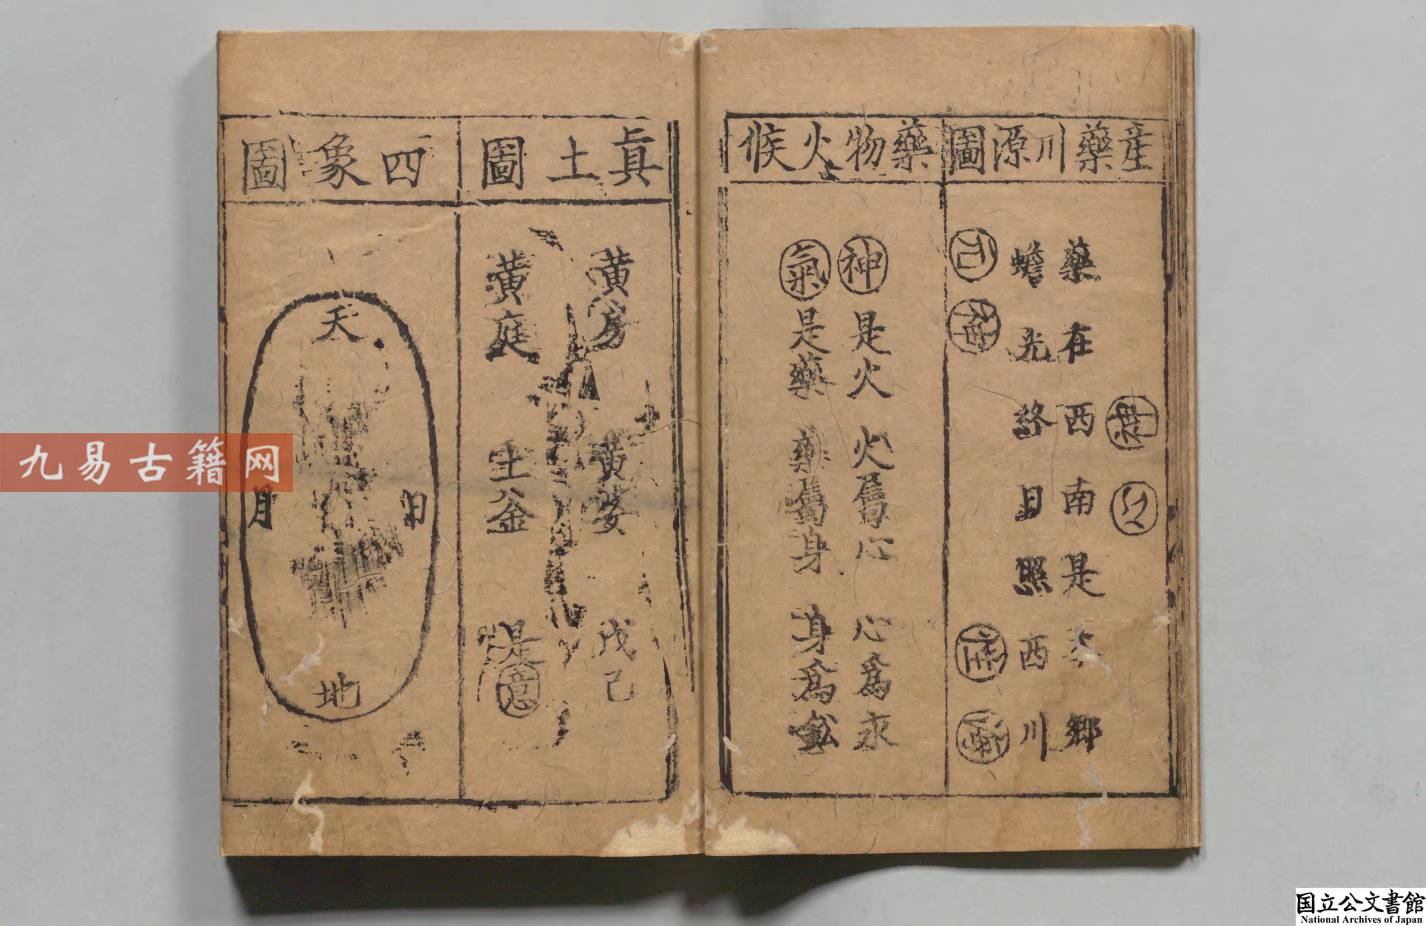 產藥川源圖
藥在西南是本鄉
蟾光終日照西川
藥物火候
神是火 火屬心 心爲汞
氣是藥 藥屬身 身爲鉛
眞土圖
黃房 黃婆 戊己
黃庭 土釜 是意
四象圖
天
日
月
地
九易古籍网
国立公文書館
National Archives of Japan